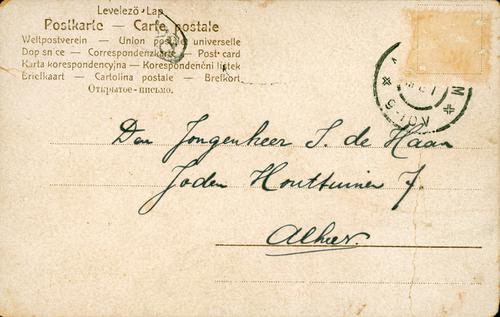 Levelező-Lap
Postkarte — Carte postale
Weltpostverein — Union postale universelle
Dopisnice — Correspondenzkarte — Post card
Karta korespondencyjna — Korespondenční lístek
Briefkaart — Cartolina postale — Brefkort
Открытое-письмо.
M
KOI-5
Den Jongenheer S. de Haan
Joden Houttuinen 7.
Alhier.